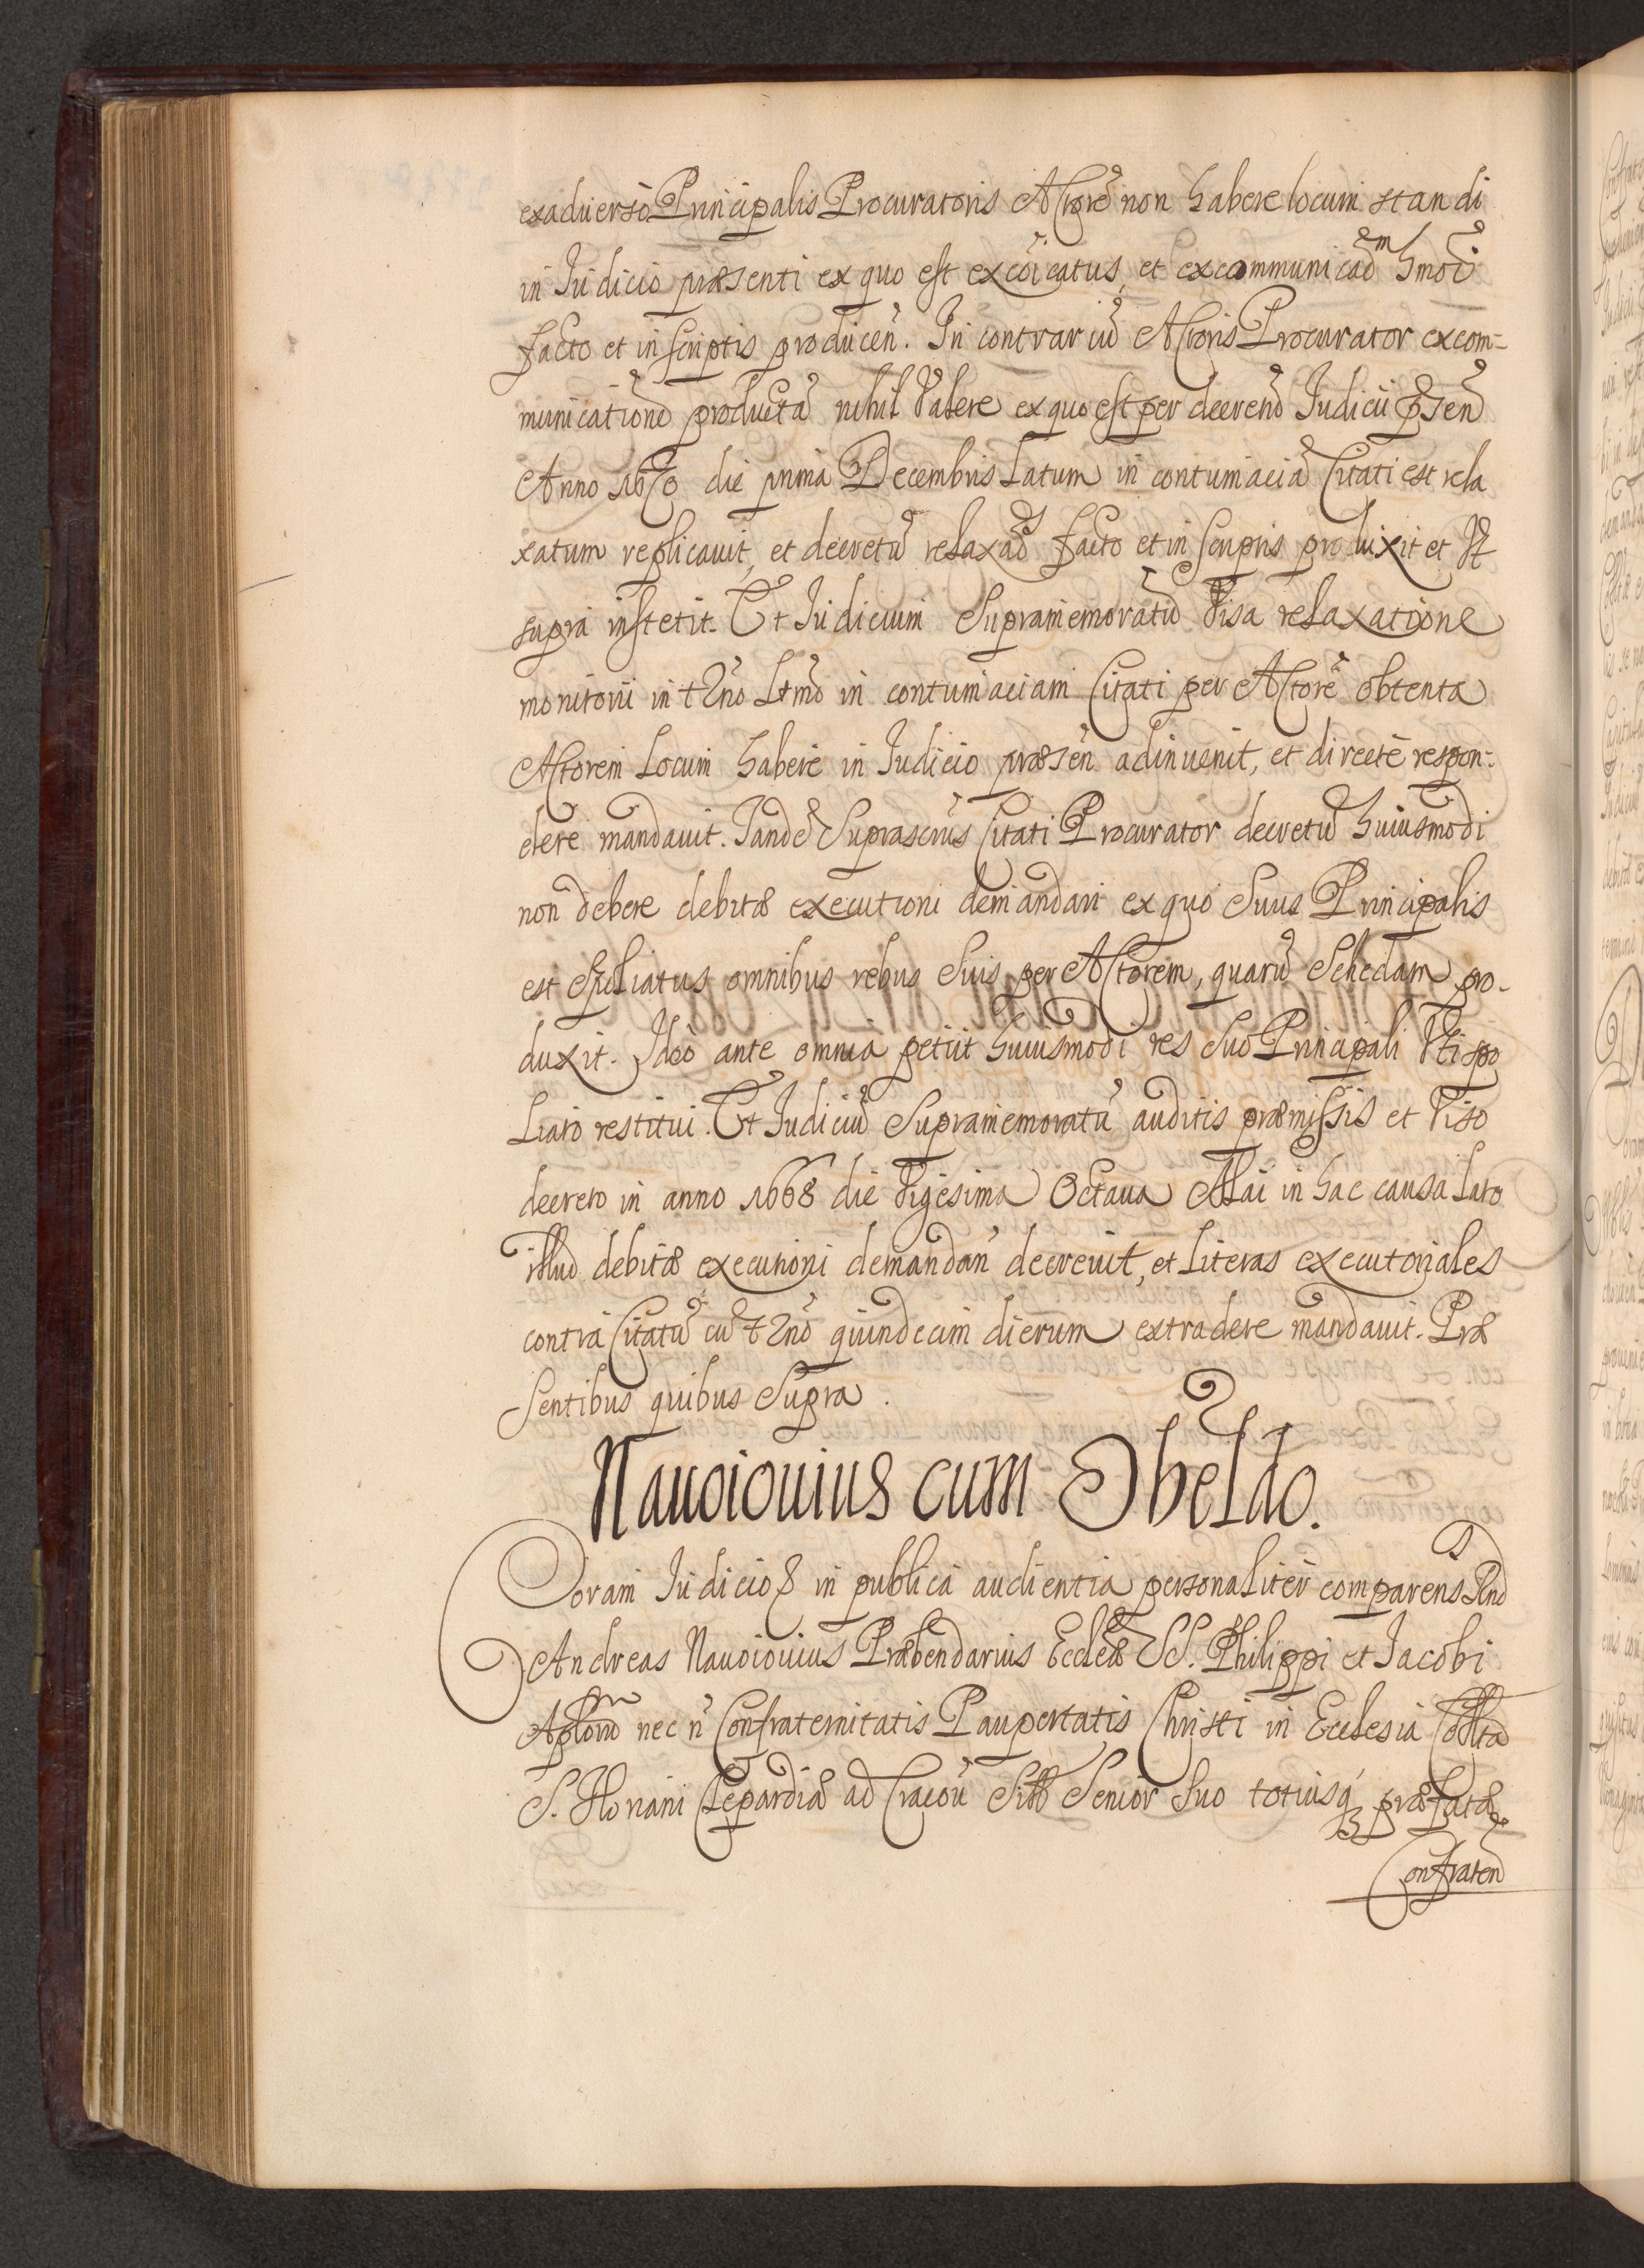 exaduerso Principalis Procuratoris Actorẽ non habere locum standi
in Iudicio præsenti ex quo est excõicatus, et excommunicãõm hmõi
facto et in scriptis producen̄. In contrariũ Actoris Procurator excom-
municationẽ productã nihil Valere ex quo est per decretũ Iudicii p̃sen̄
Anno 1670 die prima Decembris Latum in contumaciã Citati est rela
xatum replicauit, et decretũ relaxaõs facto et in scriptis produxit et Vt
supra institit. Et Iudicium Supramemoratũ Visa relaxatione
monitorii in tẽrño Ltmõ in contumaciam Citati per Actorẽ obtenta
Actorem Locum habere in Iudicio præsen̄ adinuenit, et directè respon-
dere mandauit. Tandẽ Suprascrũs Citati Procurator decretũ huiusmodi
non debere debitæ executioni demandari ex quo Suus Principalis
est spoliatus omnibus rebus Suis per Actorem, quarũ Schedam pro-
duxit. Ideò ante omnia petiit huiusmodi res Suo Principali Vti spo
Liato restitui. Et Iudiciũ Supramemoratũ auditis præmissis et Viso
decreto in anno 1668 die Vigesima Octaua Maii in hac causa Lato
illud debitæ executioni demandan̄ decreuit, et Literas executoriales
contra Citatũ cũ tẽrño quindecim dierum extradere mandauit. Præ
sentibus quibus Supra.
Nauoiouius cum Obeldo.
Coram Iudicio &c in publica audientia personaliter comparens Rñdus
Andreas Nauoiouius Præbendarius Ecclẽæ SS. Philippi et Iacobi
Aplorũm nec ñ Confraternitatis Paupertatis Christi in Ecclesia Collta
S. Floriani Clepardiæ ad Cracoũ Sitæ Senior Suo totiusq́ præfatæ
Confratern̄